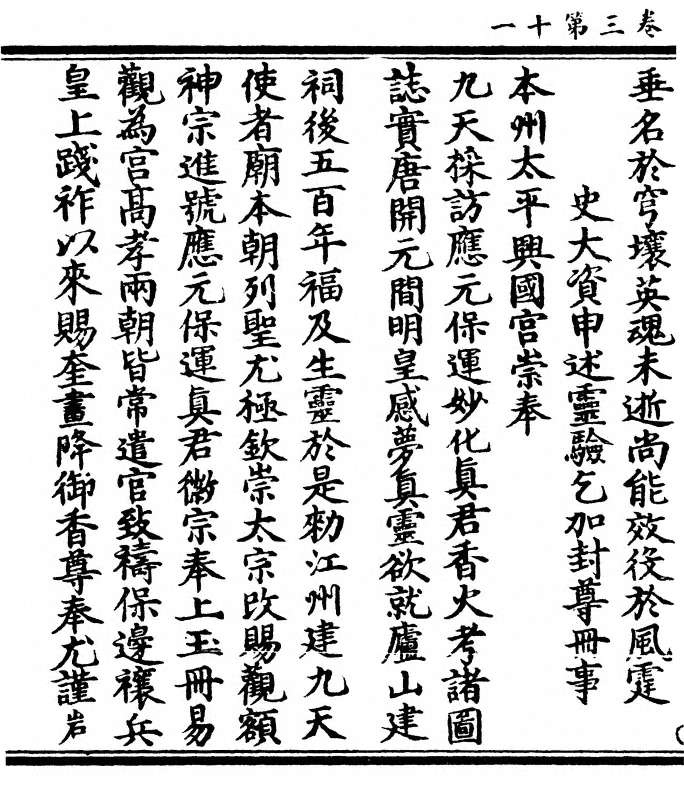 卷三第十一
垂名於穹壤英魂未逝尚能效役於風霆
史大資申述靈驗乞加封尊冊事
本州太平興國宮崇奉
九天採訪應元保運妙化眞君香火考諸圖
誌實唐開元間明皇感夢眞靈欲就廬山建
祠後五百年福及生靈於是勑江州建九天
使者廟本朝列聖尤極欽崇太宗改賜觀額
神宗進號應元保運眞君徽宗奉上玉冊易
觀為宮高孝兩朝皆常遣官致禱保邊禳兵
皇上踐祚以來賜奎畫降御香尊奉尤謹岩